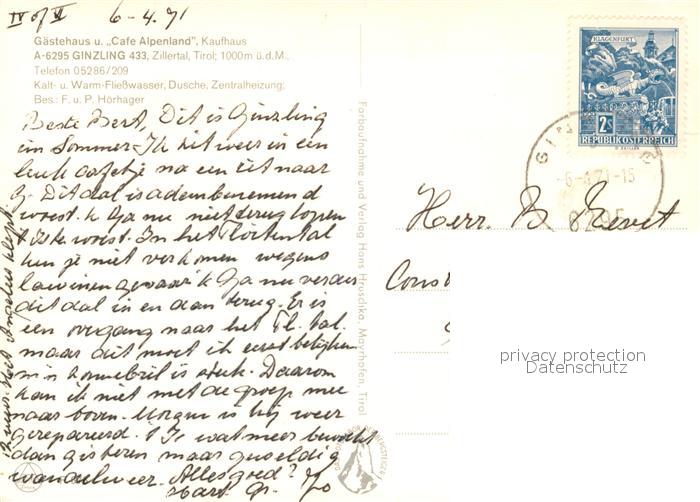 IV of V 6-4.71
Gästehaus u. „Cafe Alpenland", Kaufhaus
A-6295 GINZLING 433, Zillertal, Tirol; 1000m ü.d.M.,
Telefon 05286/209
Kalt- u. Warm-Fließwasser, Dusche, Zentralheizung;
Bes.: F. u. P. Hörhager
Beste Bert, Dit is Ginzling
im Sommer. Ik zit weer in een
leuk cafetje na een tit naar
G. Dit dal is adembenemend
woest. Ik ga nu niet terug lopen
woest. In het Floitental
kun je niet verkomen wegens
lawinen gevaar. Ik ga nu verder
dit dal in en dan terug. Er is
een overgang naar het Fl. tal.
maar dit moet ik eerst bekijken
m'n sneeuwbril is stuk. Daarom
kan ik niet met de groep mee
naar boven. Morgen is hij weer
gerepareerd. Is wat meer bewolkt
dan gisteren maar geweldig
wandelweer. Alles goed?
Hart. Gr. Jo
Farbaufnahme und Verlag Hans Hruschka, Mayrhofen, Tirol
KLAGENFURT
2S
REPUBLIK ÖSTERREICH
6.-4.71-15
6295
Herr. B.
Cons
privacy protection
Datenschutz